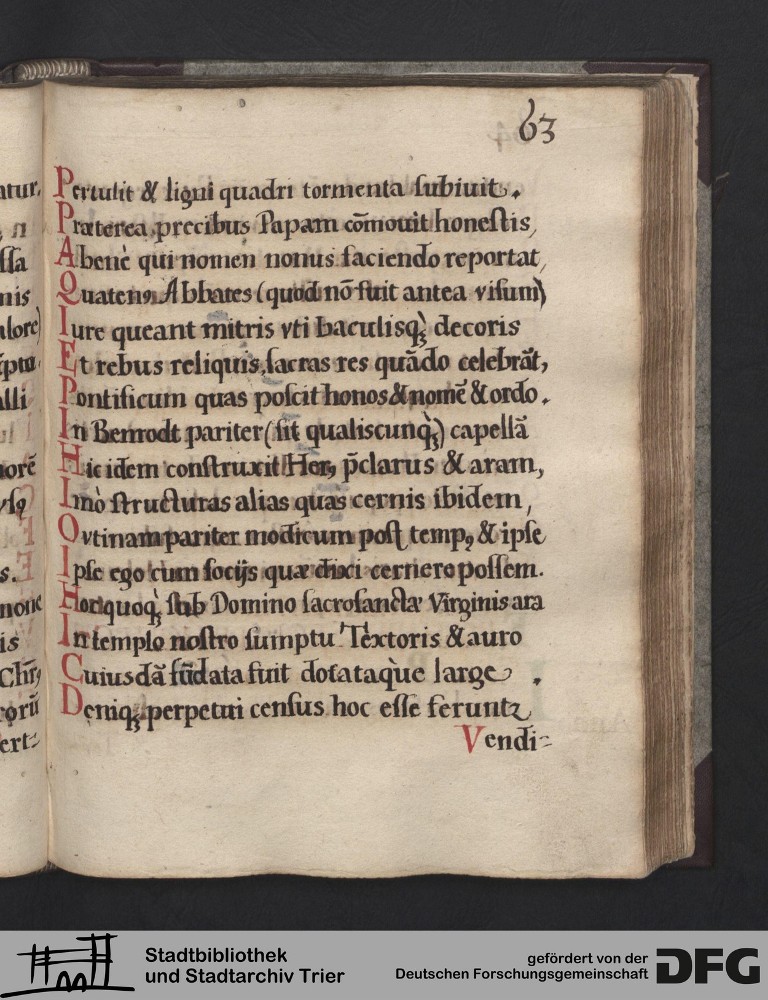 63
Pertulit & ligni quadri tormenta subiuit.
Præterea precibus Papam cōmouit honestis,
A benè qui nomen nonus faciendo reportat,
Quatenꝰ Abbates (quod nō fuit antea visum)
Iure queant mitris vti baculisqꝫ decoris
Et rebus reliquis, sacras res quādo celebrāt,
Pontificum quas poscit honos & nomē & ordo.
In Benrodt pariter (sit qualiscunqꝫ) capellā
Hic idem construxit Herꝰ p̄clarus & aram,
Imò structuras alias quas cernis ibidem,
O vtinam pariter modicum post tempꝰ & ipse
Ipse ego cum socijs quæ dixi cernere possem.
Hoc quoqꝫ sub Domino sacrosanctæ Virginis ara
In templo nostro sumptu Textoris & auro
Cuiusdā fūdata fuit dotataque large.
Deniqꝫ perpetui census hoc esse ferunt
Vendi=
atur.
n
ssa
nis
alore)
alli
norē
s.
none
is
Chrꝰ
corū
ert=
Stadtbibliothek
und Stadtarchiv Trier
gefördert von der
Deutschen Forschungsgemeinschaft
DFG